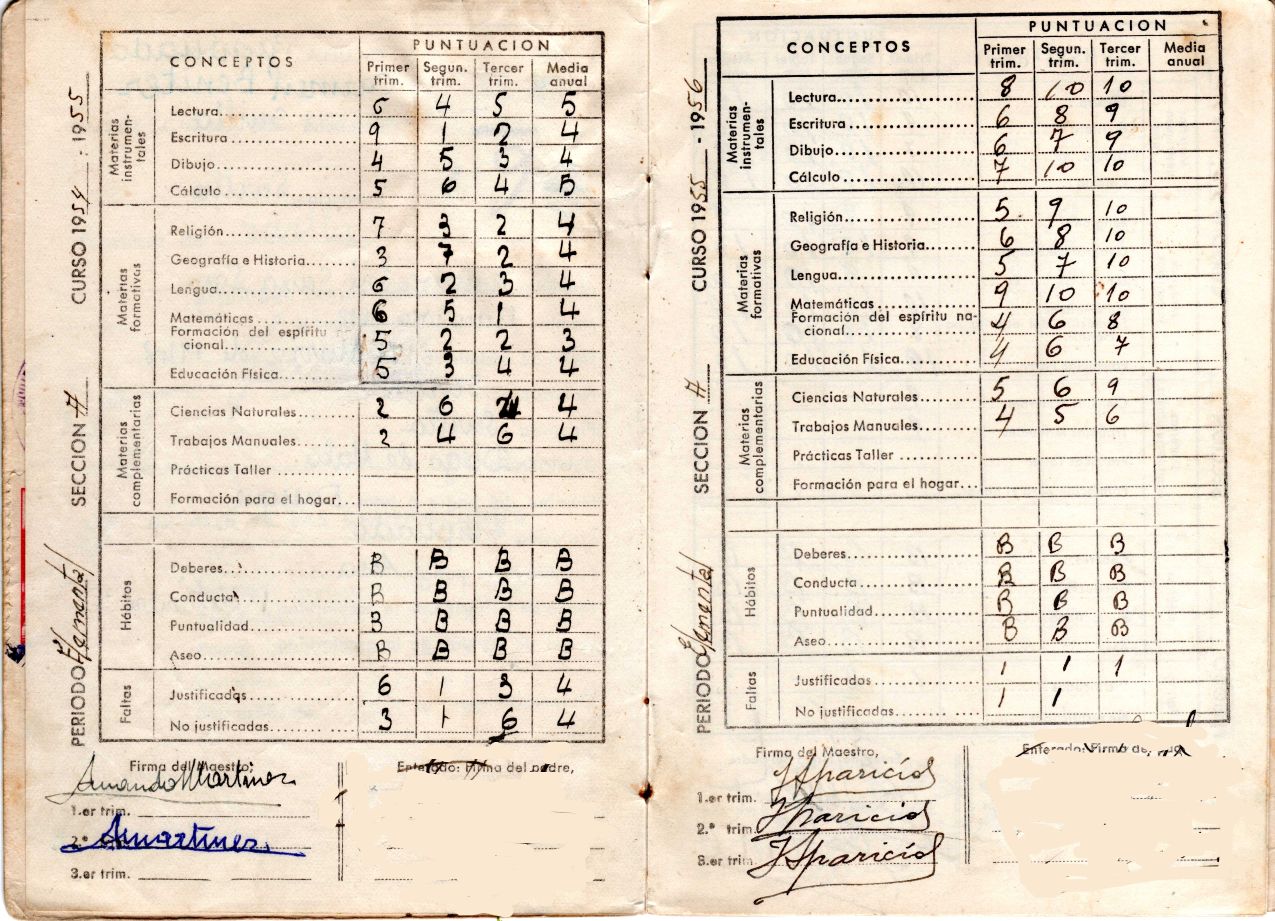 CURSO 1954 : 1955
SECCION A
PERIODO Elemental
CONCEPTOS
PUNTUACION
Primer trim. Segun. trim. Tercer trim. Media anual
Materias instrumentales
Lectura 6 4 5 5
Escritura 9 1 2 4
Dibujo 4 5 3 4
Cálculo 5 6 4 5
Materias formativas
Religión 7 3 2 4
Geografía e Historia 3 7 2 4
Lengua 6 2 3 4
Matemáticas 6 5 1 4
Formación del espíritu
cional 5 2 2 3
Educación Física 5 3 4 4
Materias complementarias
Ciencias Naturales 2 6 4
Trabajos Manuales 2 4 6 4
Prácticas Taller
Formación para el hogar
Hábitos
Deberes B B B B
Conducta B B B B
Puntualidad B B B B
Aseo B B B B
Faltas
Justificadas 6 1 3 4
No justificadas 3 1 6 4
Firma del Maestro,
Enterado: Firma del padre,
Armando Martinez
1.er trim.
2.º AMartinez
3.er trim.
CURSO 1955 - 1956
SECCION A
PERIODO Elemental
CONCEPTOS
PUNTUACION
Primer trim. Segun. trim. Tercer trim. Media anual
Materias instrumen-tales
Lectura 8 10 10
Escritura 6 8 9
Dibujo 6 7 9
Cálculo 7 10 10
Materias formativas
Religión 5 9 10
Geografía e Historia 6 8 10
Lengua 5 7 10
Matemáticas 9 10 10
Formación del espíritu na-
cional 4 6 8
Educación Física 4 6 7
Materias complementarias
Ciencias Naturales 5 6 9
Trabajos Manuales 4 5 6
Prácticas Taller
Formación para el hogar
Hábitos
Deberes B B B
Conducta B B B
Puntualidad B B B
Aseo B B B
Faltas
Justificados 1 1 1
No justificadas 1 1
Firma del Maestro,
Enterado: Firma de
1.er trim. JAparicio
2.º trim. JAparicio
3.er trim. JAparicio